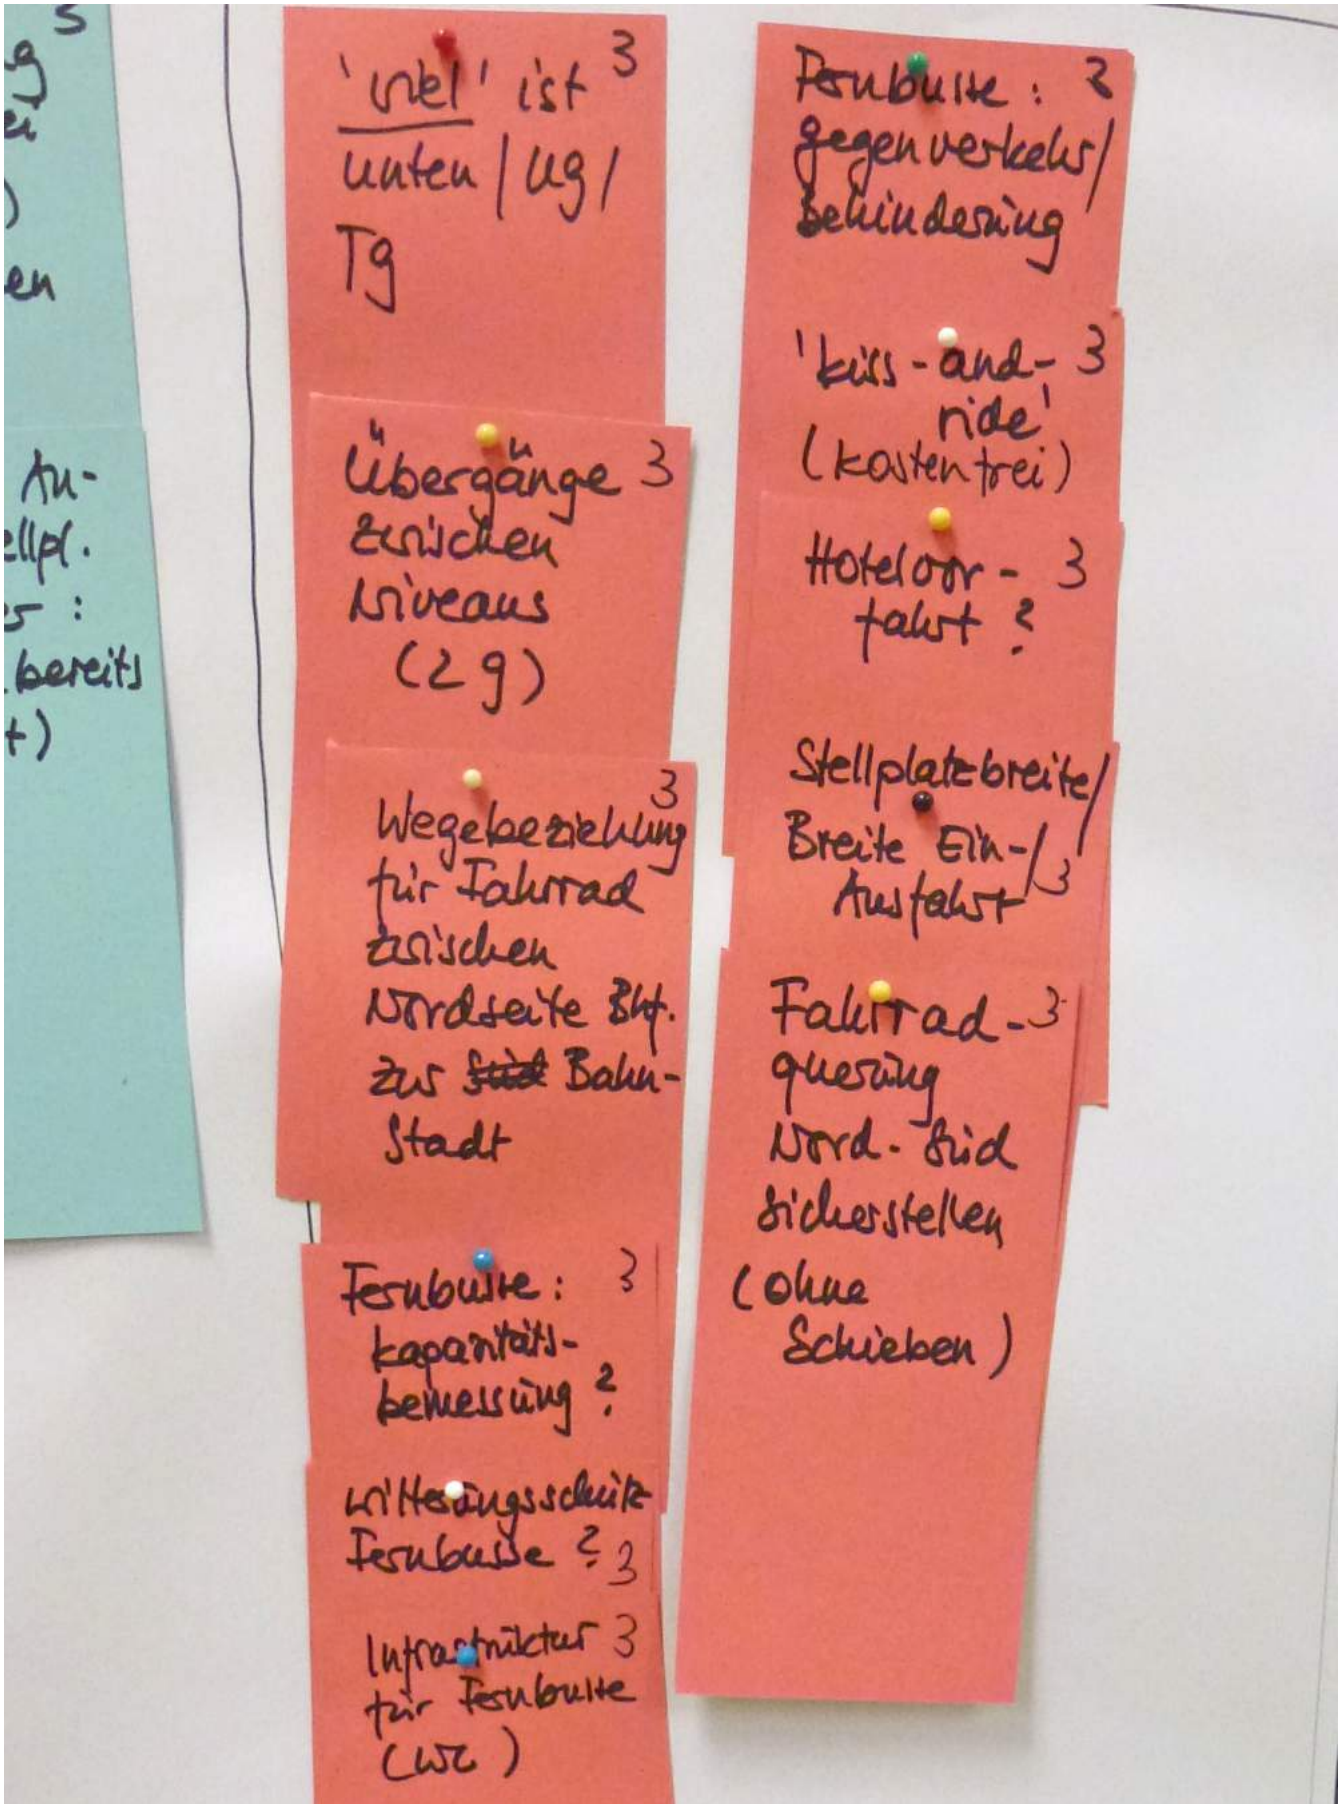 5
g
ei
)
en
An-
ellpl.
er :
bereits
t)
'viel' ist 3
unten / UG /
TG
Übergänge 3
zwischen
Niveaus
(2 g)
3
Wegebeziehung
für Fahrrad
zwischen
Nordseite Bhf.
zur Süd Bahn-
stadt
Fernbusse: 3
kapazitäts-
bemessung ?
Witterungsschutz
Fernbusse ? 3
Infrastruktur 3
für Fernbusse
(WC)
Fernbusse: 3
gegenverkehr/
Behinderung
'kiss-and- 3
ride'
(kostenfrei)
Hotelvor- 3
fahrt ?
Stellplatzbreite/
Breite Ein-/
Ausfahrt 3
Fahrrad- 3
querung
Nord-Süd
sicherstellen
(ohne
Schieben)